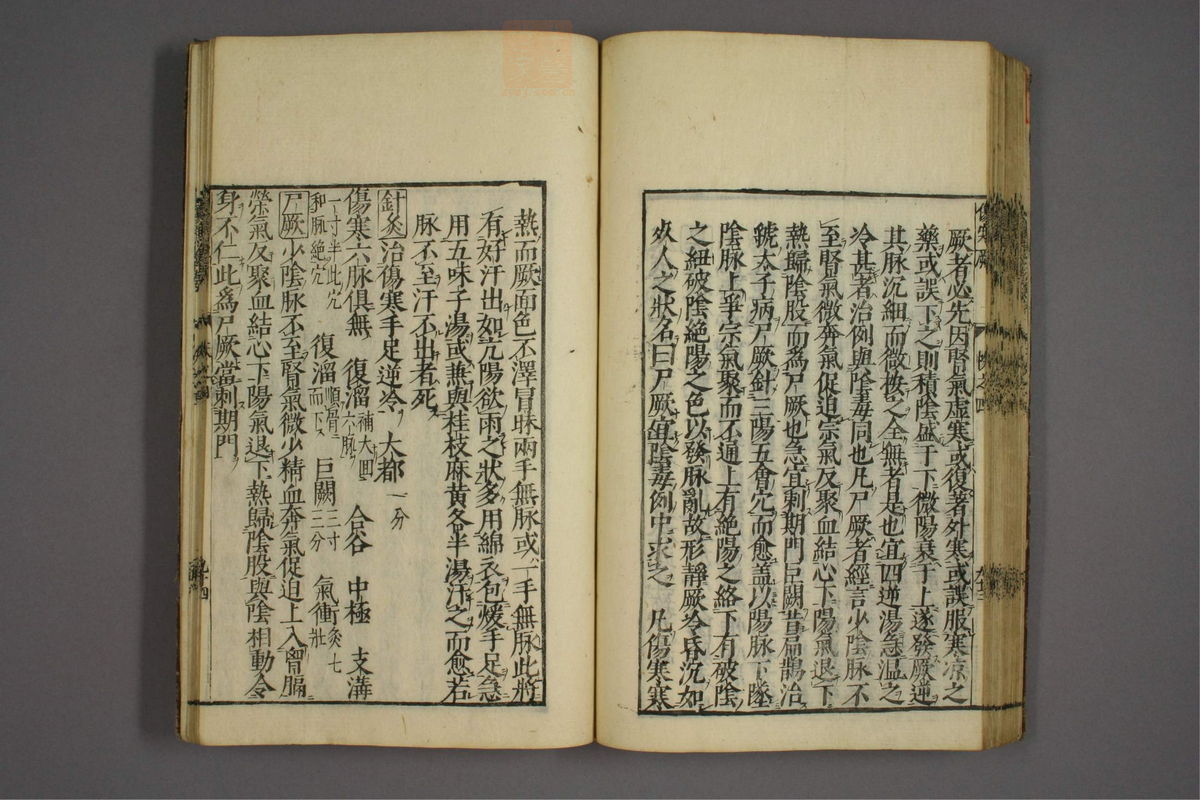 厥者必先因腎氣虛寒或復著外寒或誤服寒凉之
藥或誤下之則積陰盛于下微陽衰于上遂發厥逆
其脉沉細而微按之全無者是也宜四逆湯急温之
冷甚者治例與陰毒同也凡尸厥者經言少陰脉不
至腎氣微奔氣促迫宗氣反聚血結心下陽氣退下
熱歸陰股而為尸厥也急宜刺期門巨闕昔扁鵲治
虢太子病尸厥針三陽五會穴而愈盖以陽脉下墜
陰脉上爭宗氣聚而不通上有絶陽之絡下有破陰
之紐破陰絶陽之色以發脉亂故形靜厥冷昏沉如
死人之狀名曰尸厥宜陰毒例中求之　凡傷寒寒
熱而厥面色不澤冒昧兩手無脉或一手無脉此將
有好汗出如亢陽欲雨之狀多用綿衣包煖手足急
用五味子湯或兼與桂枝麻黄各半湯汗之而愈若
脉不至汗不出者死
針灸治傷寒手足逆冷　大都一分
傷寒六脉俱無　復溜補大回六脉　合谷　中極　支溝
一寸半此穴和脉絶穴　復溜順骨而下　巨闕三寸三分　氣衝灸七壯
尸厥少陰脉不至腎氣微少精血奔氣促迫上入胷膈
榮氣反聚血結心下陽氣退下熱歸陰股與陰相動令
身不仁此為尸厥當刺期門